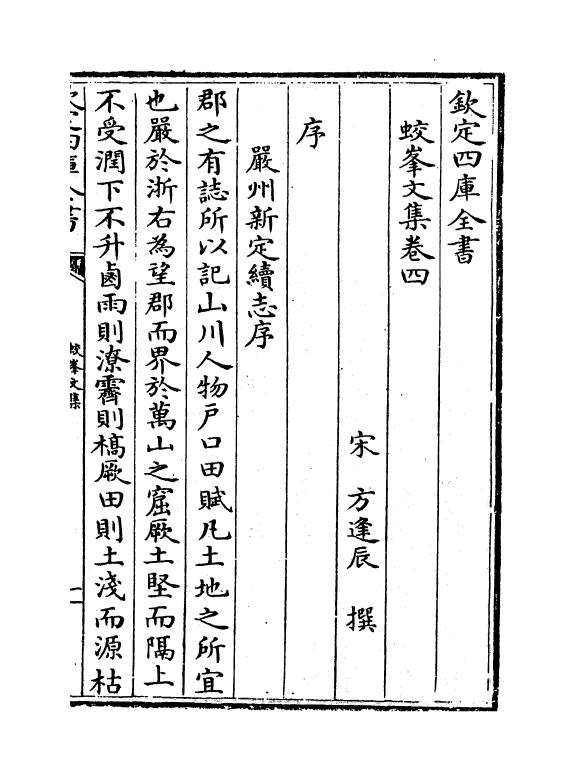 欽定四庫全書
蛟峯文集卷四
宋　方逢辰　撰
序
嚴州新定續志序
郡之有誌所以記山川人物戶口田賦凡土地之所宜
也嚴於浙右為望郡而界於萬山之窟厥土堅而隔上
不受潤下不升鹵雨則潦霽則槁厥田則土淺而源枯
蛟峯文集